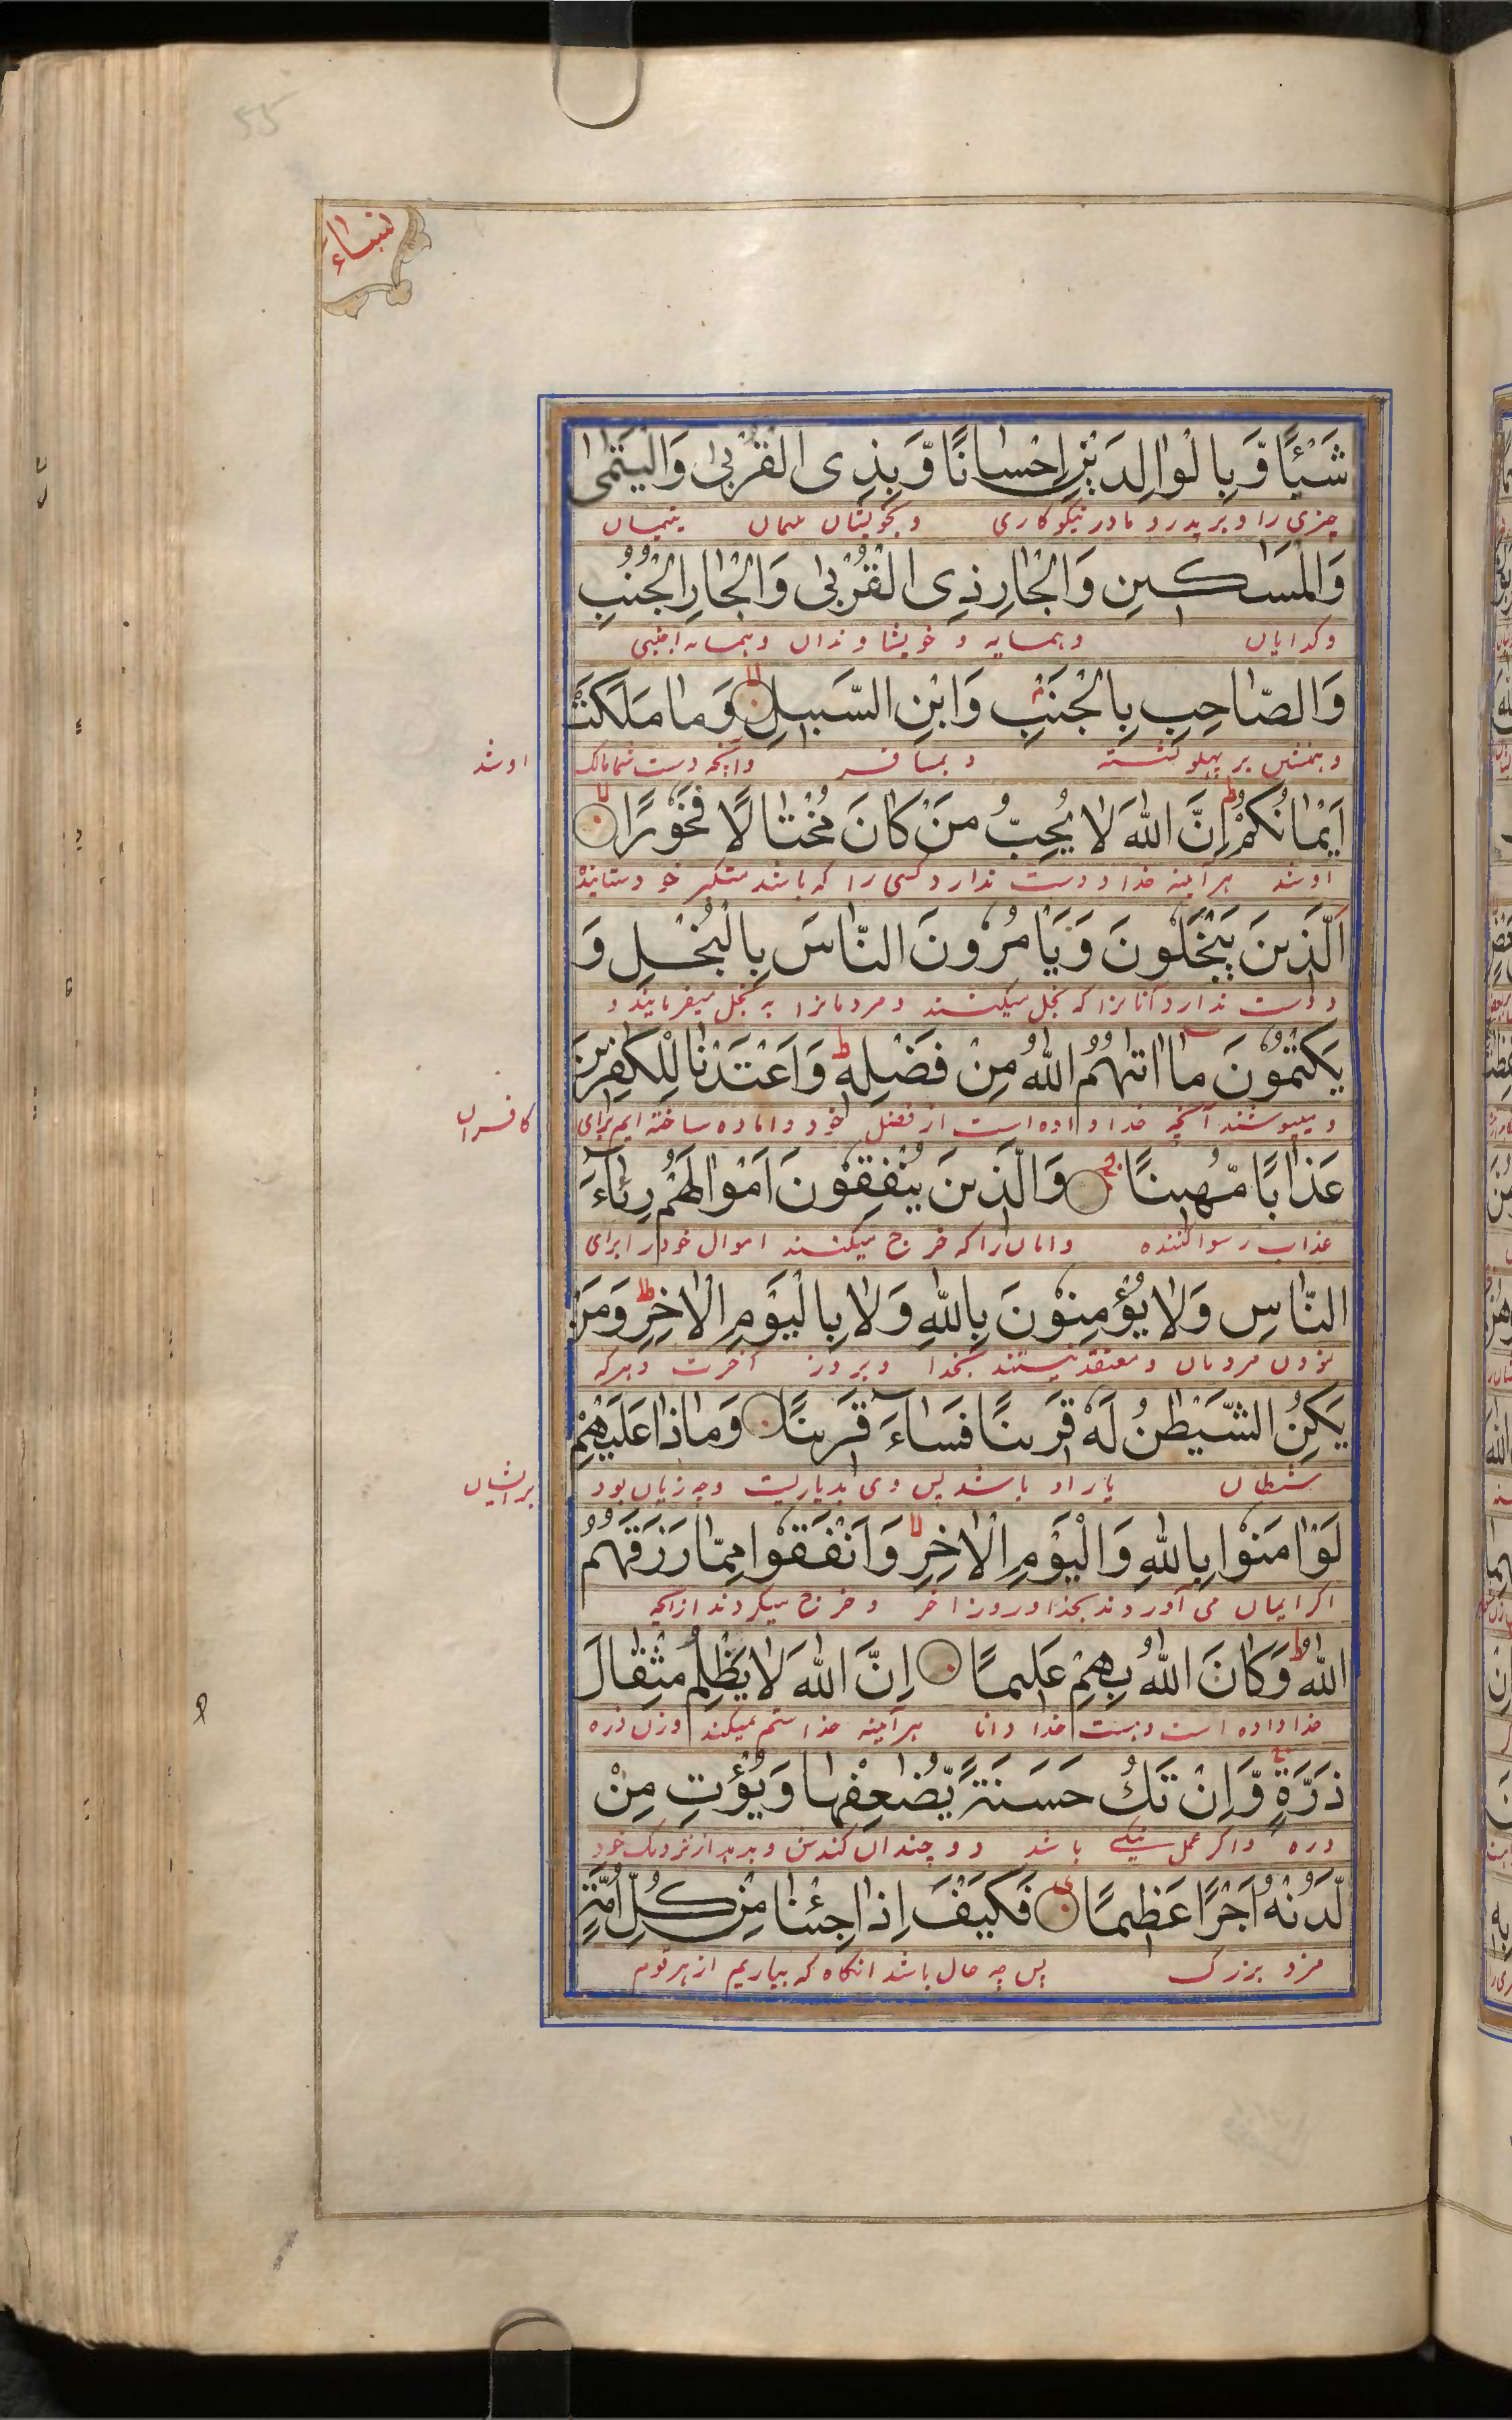 55
نساء
شَيْئًا وَّبِالْوَالِدَيْنِ اِحْسَانًا وَّبِذِى الْقُرْبٰى وَالْيَتٰمٰى
چیزی را و بر پدر و مادر نیکوکاری و بخویشان یتیمان
وَالْمَسَاكِيْنِ وَالْجَارِ ذِى الْقُرْبٰى وَالْجَارِ الْجُنُبِ
و کدایان و همسایه و خویشاوندان و همسایه اجنبی
وَالصَّاحِبِ بِالْجَنْبِ وَابْنِ السَّبِيْلِ وَمَا مَلَكَتْ
و همنشین بر پهلو نشسته و بمسافر و آنچه دست شما مالک
او شد
اَيْمَانُكُمْ ط اِنَّ اللّٰهَ لَا يُحِبُّ مَنْ كَانَ مُخْتَالًا فَخُوْرًا
او شد هر آینه خدا دوست ندارد کسی را که باشد متکبر خودستاینده
اَلَّذِيْنَ يَبْخَلُوْنَ وَيَاْمُرُوْنَ النَّاسَ بِالْبُخْلِ وَ
دوست ندارد آنانرا که بخل میکنند و مردمانرا به بخل میفرمایند و
يَكْتُمُوْنَ مَا اٰتٰهُمُ اللّٰهُ مِنْ فَضْلِهٖ ط وَاَعْتَدْنَا لِلْكٰفِرِيْنَ
و میپوشند آنچه خدا داده است از فضل خود و اماده ساخته ایم برای
کافران
عَذَابًا مُّهِيْنًا وَالَّذِيْنَ يُنْفِقُوْنَ اَمْوَالَهُمْ رِئَآءَ
عذاب رسوا کننده و انان را که خرج میکنند اموال خود را برای
النَّاسِ وَلَا يُؤْمِنُوْنَ بِاللّٰهِ وَلَا بِالْيَوْمِ الْاٰخِرِ ط وَمَنْ
نمودن مردمان و معتقد نیستند بخدا و بروز آخرت و هرکه
يَكُنِ الشَّيْطٰنُ لَهٗ قَرِيْنًا فَسَآءَ قَرِيْنًا وَمَاذَا عَلَيْهِمْ
شیطان یار او باشد پس وی بد یاریست و چه زیان بود
بر ایشان
لَوْ اٰمَنُوْا بِاللّٰهِ وَالْيَوْمِ الْاٰخِرِ وَاَنْفَقُوْا مِمَّا رَزَقَهُمُ
اکر ایمان می آوردند بخدا و روز اخر و خرج میکردند ازانچه
اللّٰهُ ط وَكَانَ اللّٰهُ بِهِمْ عَلِيْمًا اِنَّ اللّٰهَ لَا يَظْلِمُ مِثْقَالَ
خدا داده است و هست خدا دانا هر آینه خدا ستم نمیکند وزن ذره
ذَرَّةٍ ج وَّاِنْ تَكُ حَسَنَةً يُّضٰعِفْهَا وَيُؤْتِ مِنْ
ذره و اکر عمل نیکی باشد دو چندان کندش و بدهد از نزدیک خود
لَّدُنْهُ اَجْرًا عَظِيْمًا فَكَيْفَ اِذَا جِئْنَا مِنْ كُلِّ اُمَّةٍ
مزد بزرک پس چه حال باشد انکاه که بیاریم از هر قوم